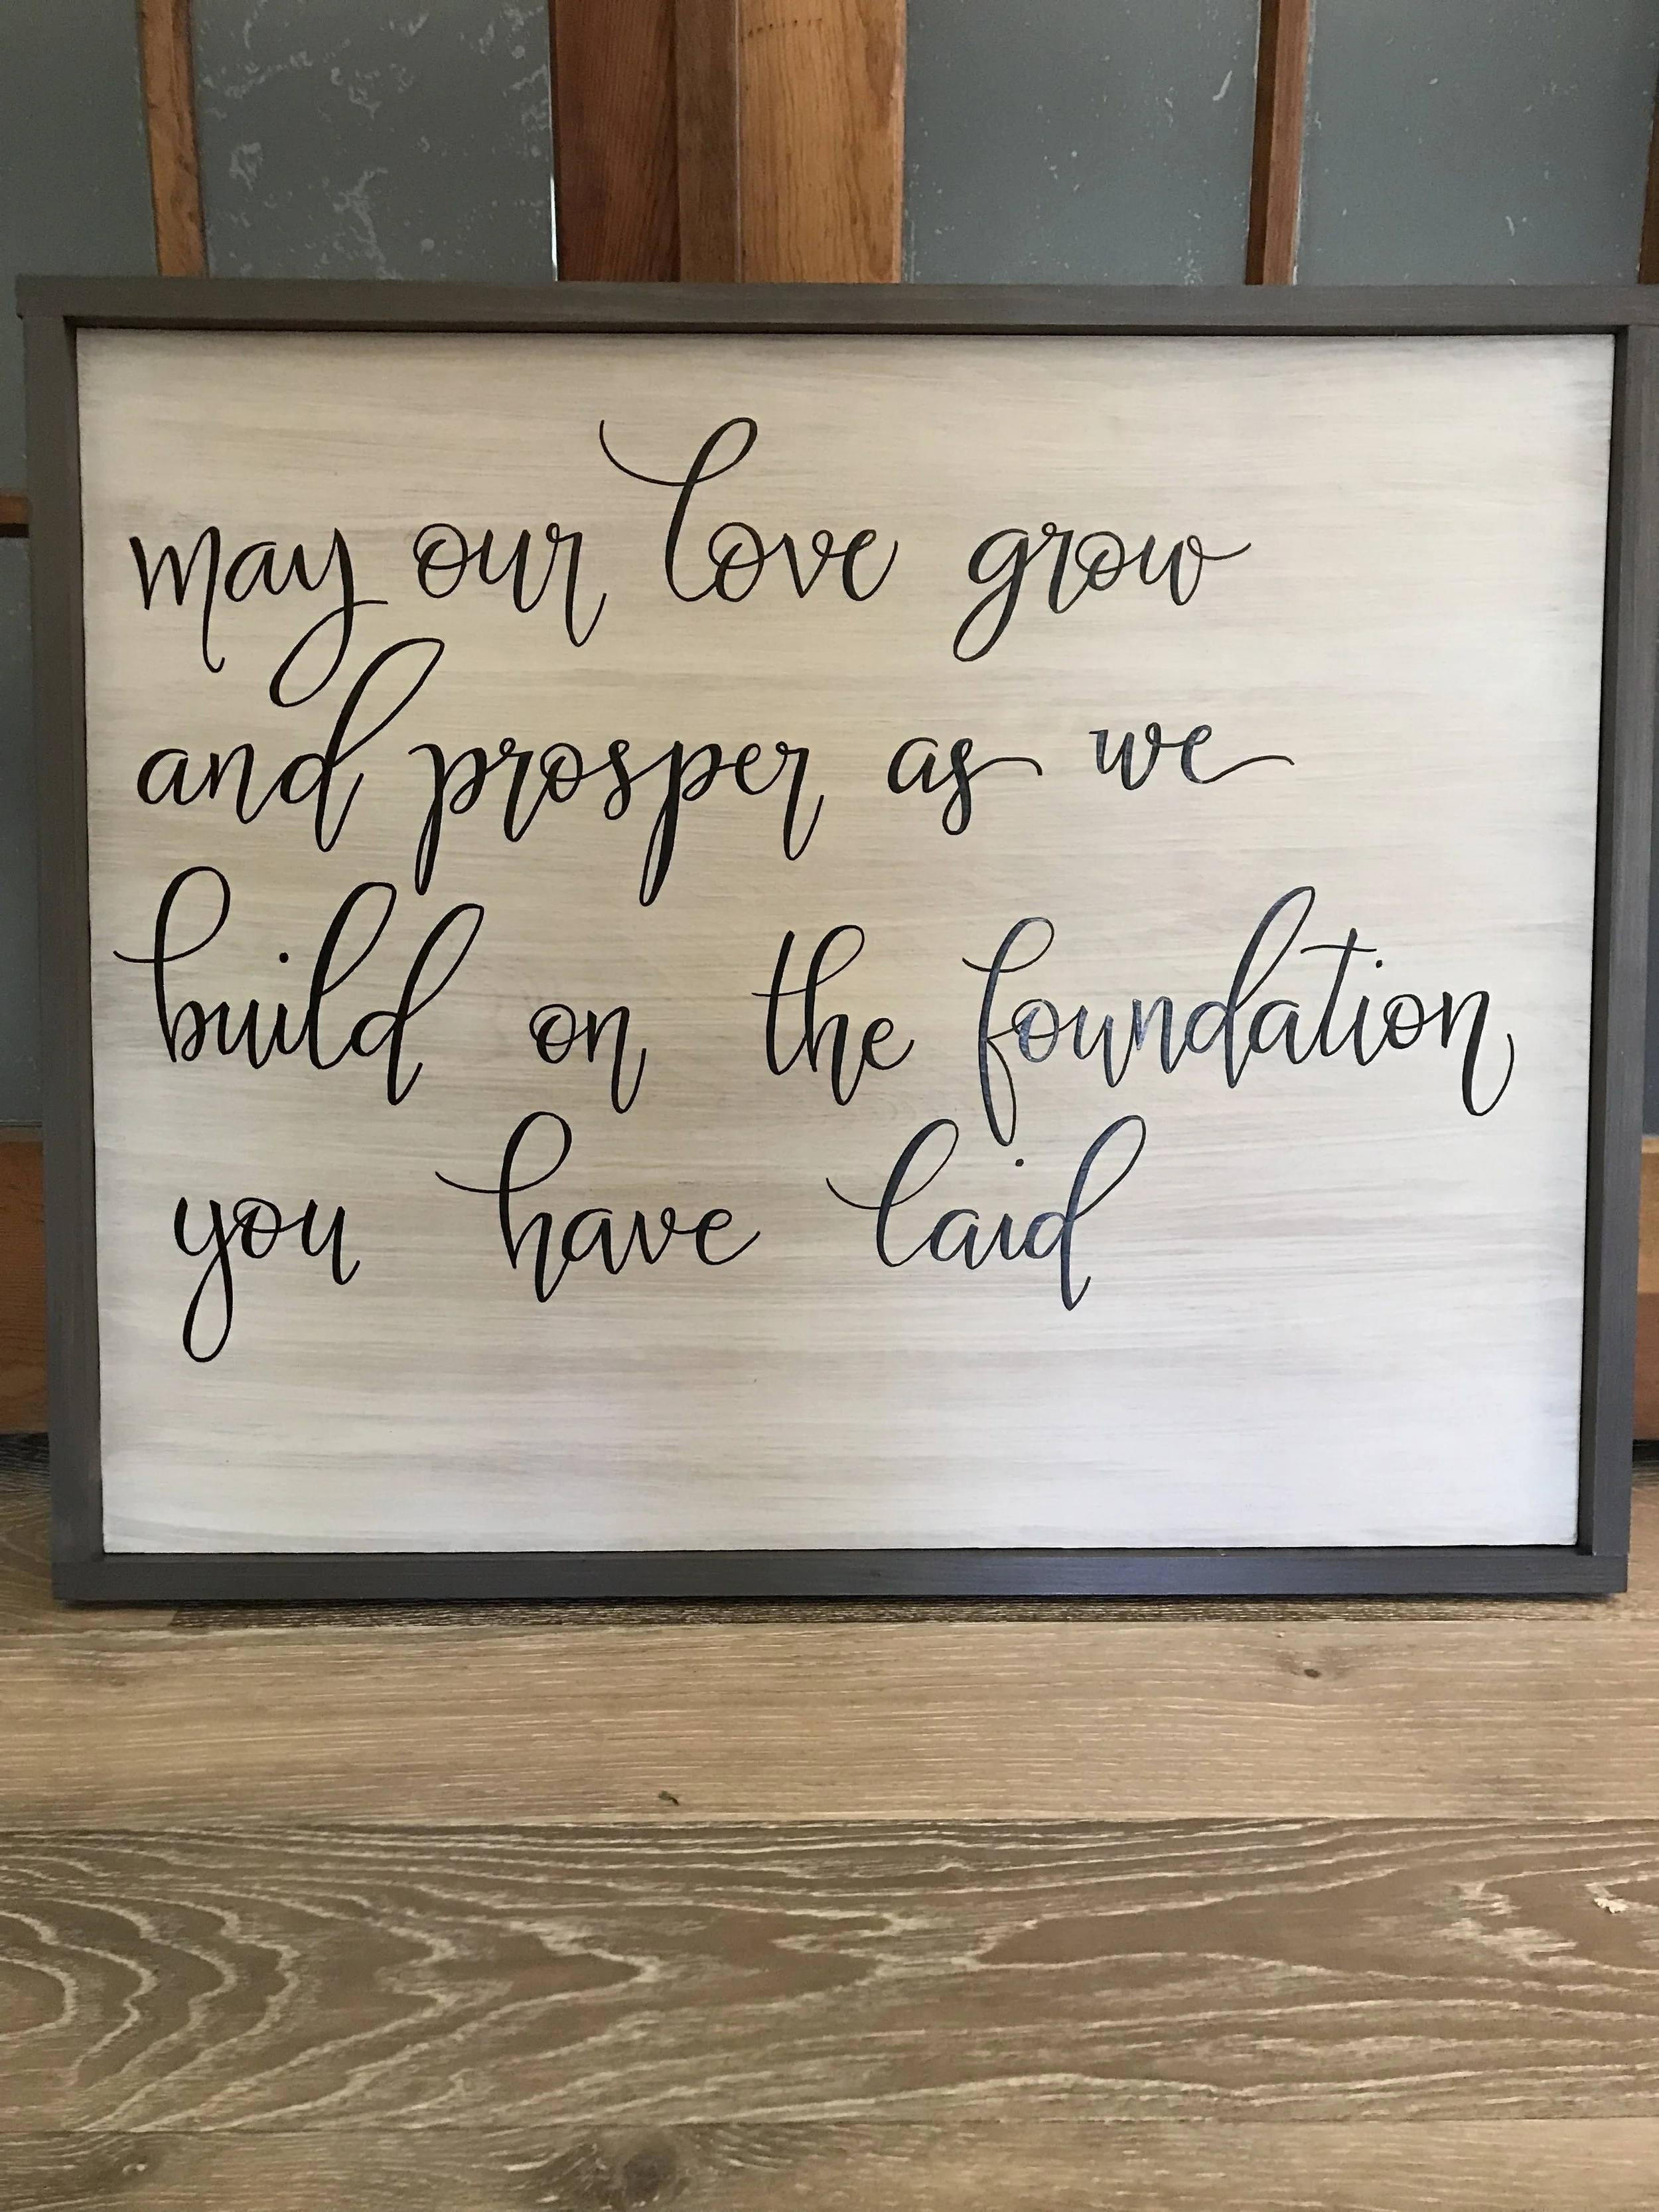 may our love grow
and prosper as we
build on the foundation
you have laid